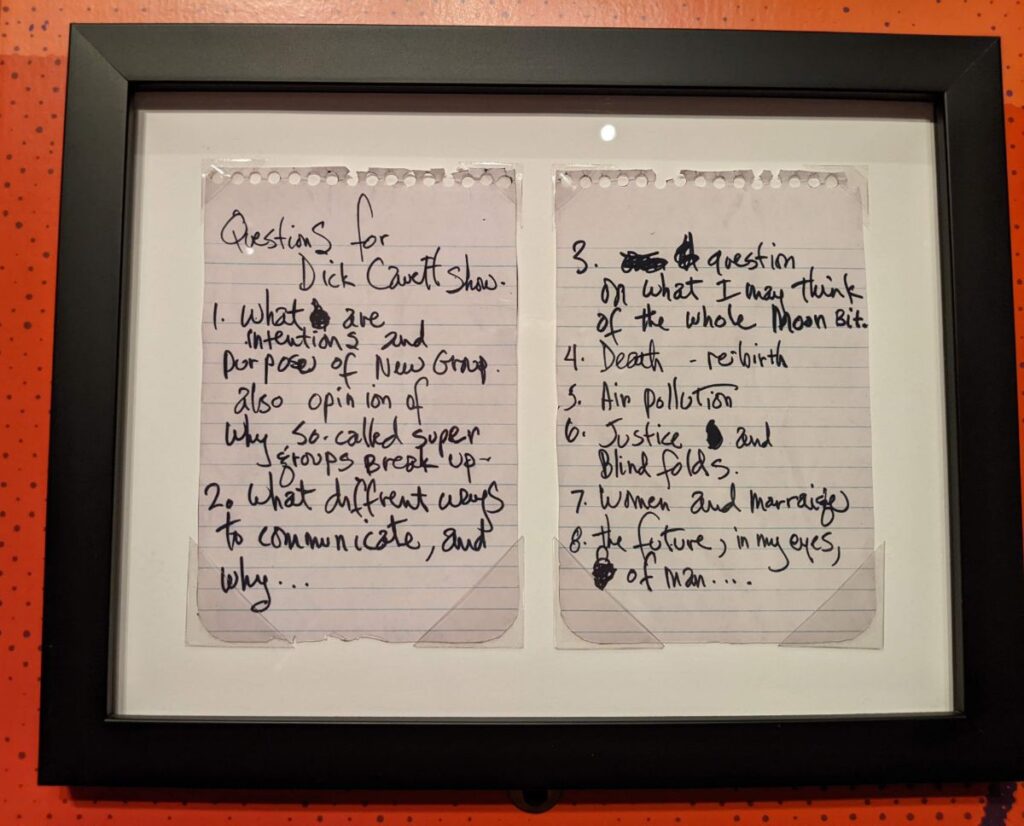 Questions for
Dick Cavett Show.
1. What are
intentions and
purpose of New Group.
also opinion of
why so-called super
groups Break up-
2. What diffrent ways
to communicate, and
why...
3. question
on what I may think
of the whole Moon Bit.
4. Death - rebirth
5. Air pollution
6. Justice and
Blind folds.
7. Women and marraige
8. the future, in my eyes,
of man....